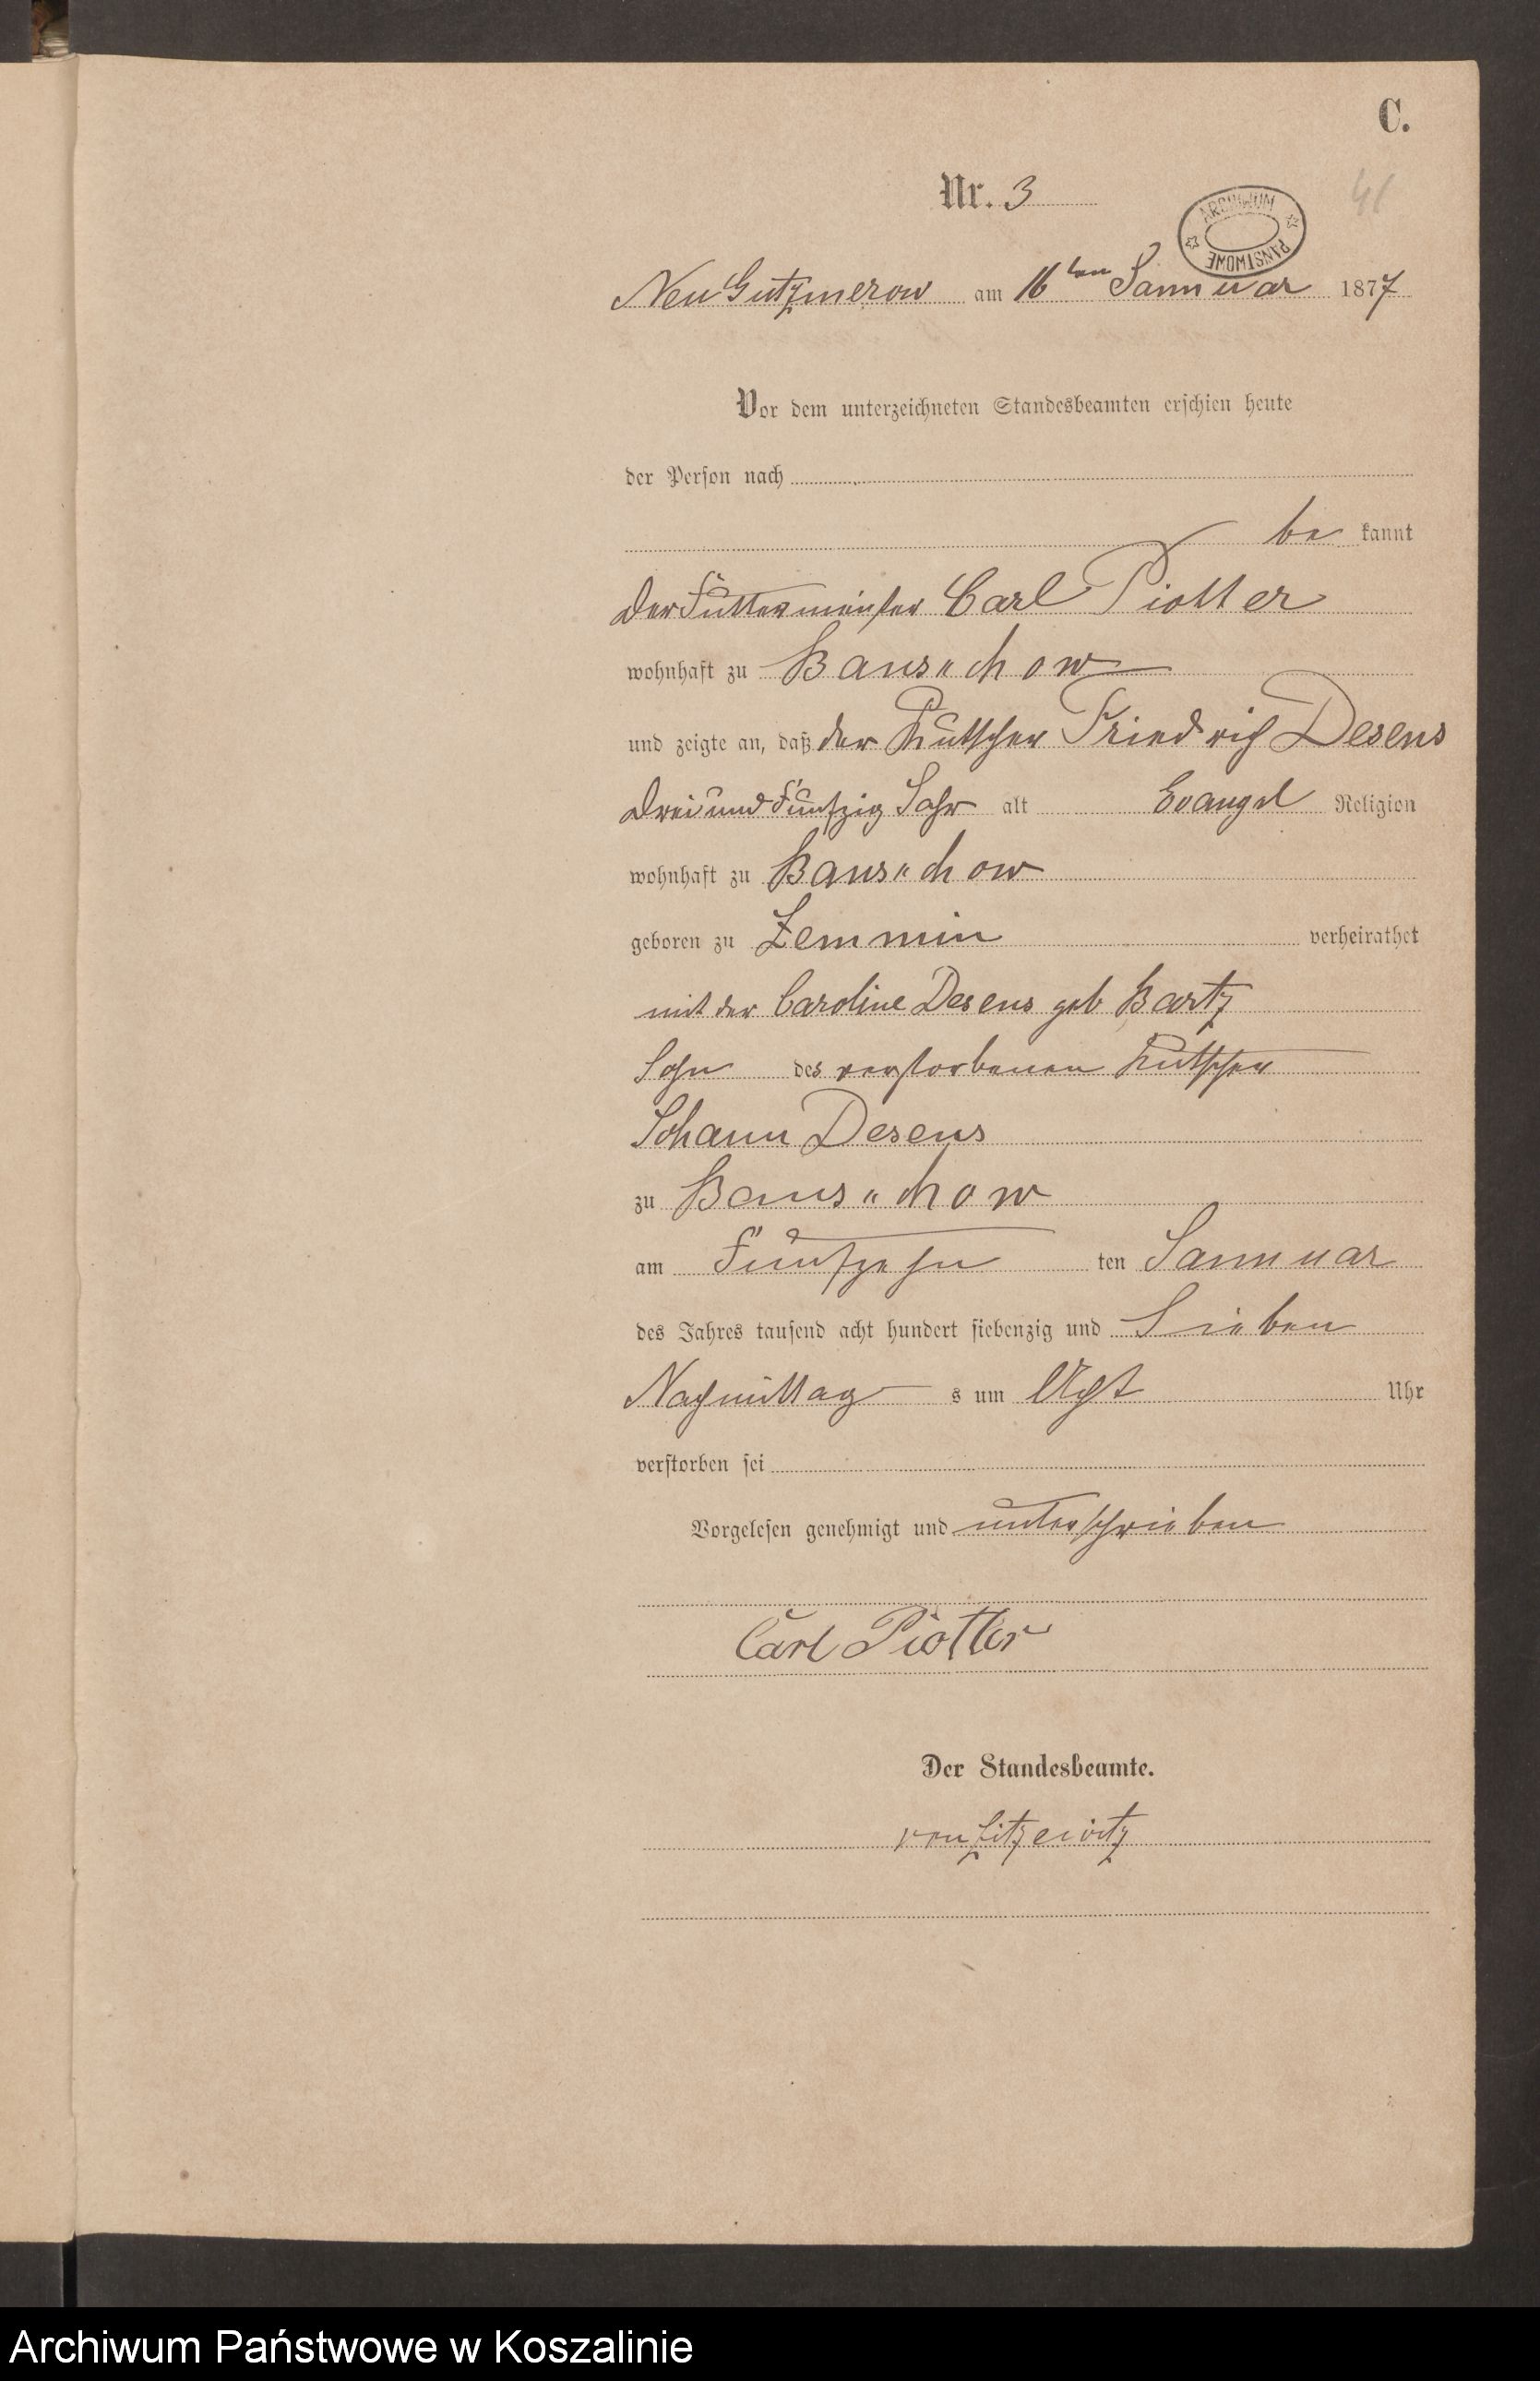 C.
Nr. 3
41
ARCHIWUM PAŃSTWOWE
Neu Gutzmerow am 16ten Januar 1877
Vor dem unterzeichneten Standesbeamten erschien heute
der Person nach
be kannt
der Futtermeister Carl Piotter
wohnhaft zu Bans"chow
und zeigte an, daß der Kutscher Friedrich Desens
Drei und Fünfzig Jahr alt Evangel Religion
wohnhaft zu Bans"chow
geboren zu Zemmin verheirathet
mit der Caroline Desens geb Bartz
Sohn des verstorbenen Kutscher
Johann Desens
zu Bans"chow
am Fünfzehn ten Januar
des Jahres tausend acht hundert siebenzig und Sieben
Nachmittag s um Acht Uhr
verstorben sei
Vorgelesen genehmigt und unterschrieben
Carl Piotter
Der Standesbeamte.
von Zitzewitz
Archiwum Państwowe w Koszalinie